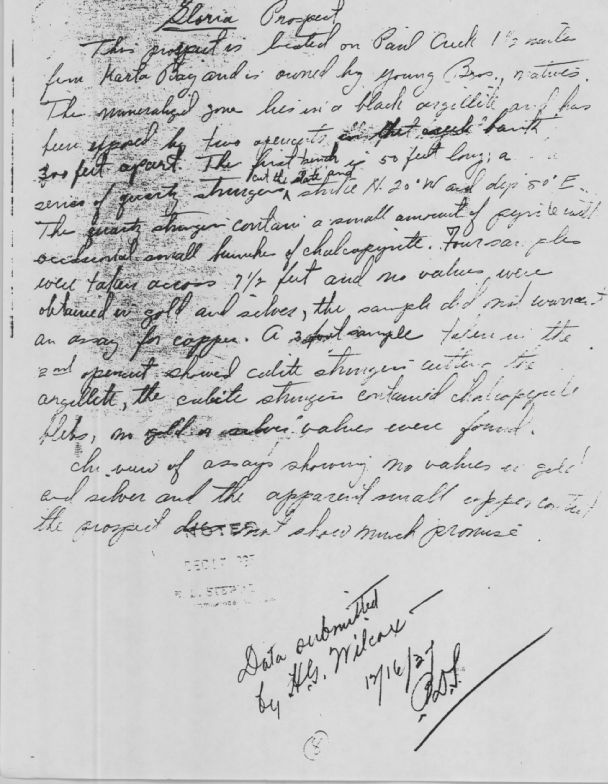 Gloria Prospect
This prospect is located on Paul Creek 1 1/2 miles
from Karta Bay and is owned by Young Bros., natives.
The mineralized zone lies in a black argillite and has
been exposed by two opencuts, bank
300 feet apart. The first is 50 feet long; a
series of quartz stringers cut the slate and strike N. 20° W and dip 50° E.
The quartz stringers contain a small amount of pyrite with
occasional small bunches of chalcopyrite. Four samples
were taken across 7 1/2 feet and no values were
obtained in gold and silver, the sample did not warrant
an assay for copper. A 3 foot sample taken in the
2nd opencut showed calcite stringers cutting the
argillite, the calcite stringers contained chalcopyrite
blebs, no gold or silver values were found.
In view of assays showing no values in gold
and silver and the apparent small copper content
the prospect does not show much promise.
NOTED
DEC 17
Data submitted
by H.G. Wilcox
12/16/37
(8)